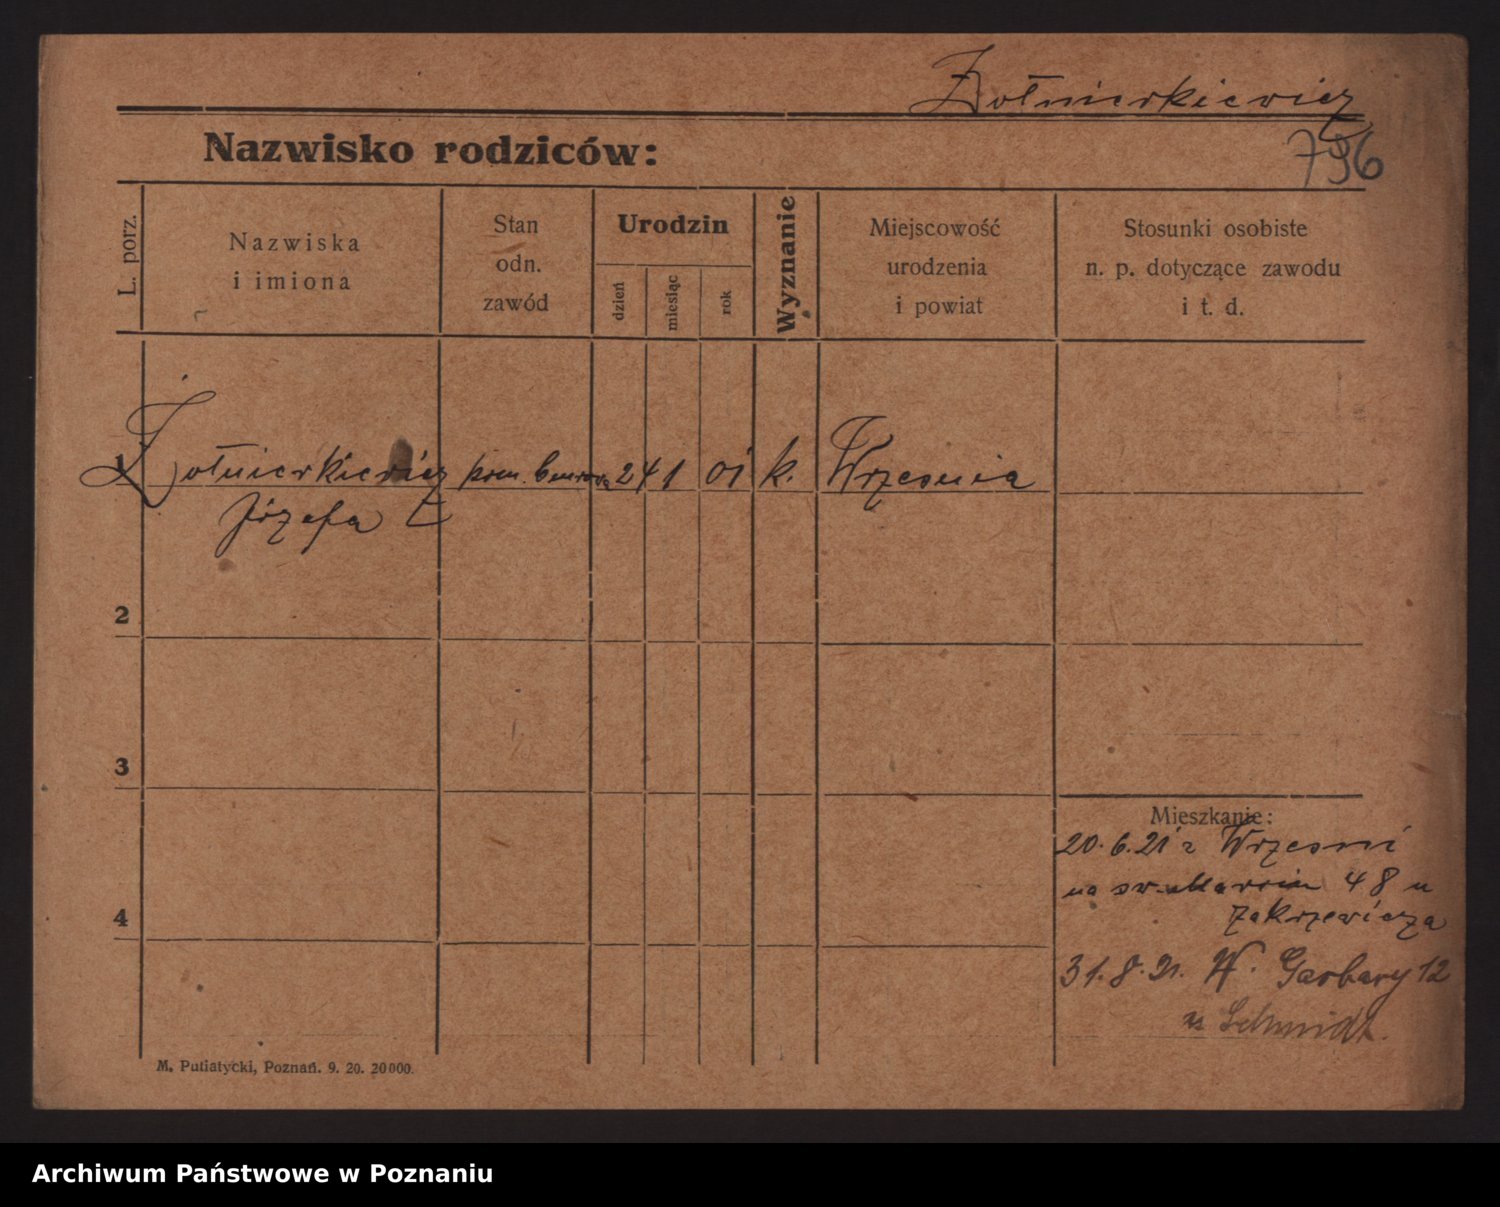 Żołnierkiewicz
796
Nazwisko rodziców:
L. porz.
Nazwiska
i imiona
Stan
odn.
zawód
Urodzin
dzień
miesiąc
rok
Wyznanie
Miejscowość
urodzenia
i powiat
Stosunki osobiste
n. p. dotyczące zawodu
i t. d.
1 Żołnierkiewicz 24 1 01 k. Września
Józefa
2
3
4
Mieszkanie:
20.6.21 z Wrześni
na św. Marcin 48 u
Zakrzewicza
31.8.21. W. Garbary 12
u Schmidt.
M. Putiatycki, Poznań. 9. 20. 20000.
Archiwum Państwowe w Poznaniu